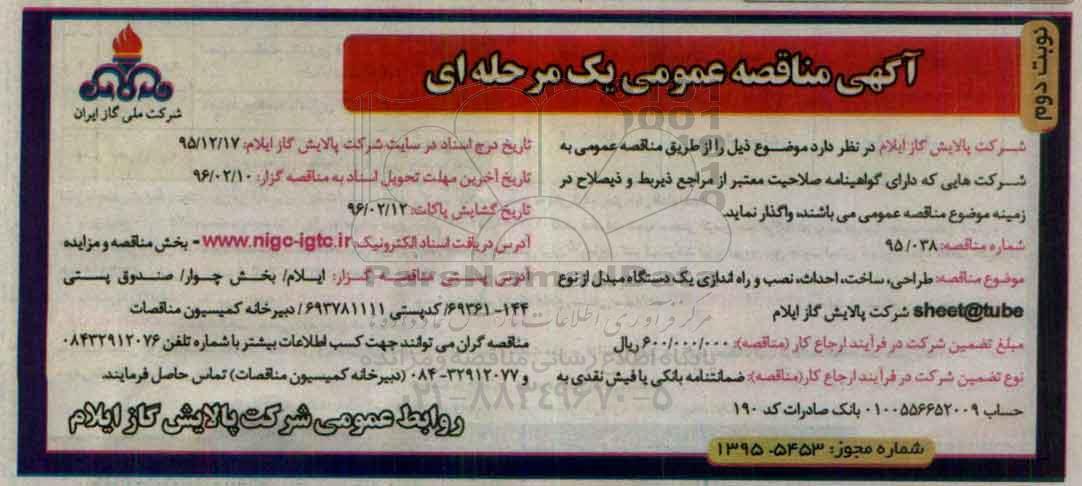 نوبت دوم
آگهی مناقصه عمومی یک مرحله ای
شرکت ملی گاز ایران
شرکت پالایش گاز ایلام در نظر دارد موضوع ذیل را از طریق مناقصه عمومی به
شرکت هایی که دارای گواهینامه صلاحیت معتبر از مراجع ذیربط و ذیصلاح در
زمینه موضوع مناقصه عمومی می باشند، واگذار نماید.
شماره مناقصه: ۹۵/۰۳۸
موضوع مناقصه: طراحی، ساخت، احداث، نصب و راه اندازی یک دستگاه مبدل از نوع
sheet@tube شرکت پالایش گاز ایلام
مبلغ تضمین شرکت در فرآیند ارجاع کار (مناقصه): ۶۰۰/۰۰۰/۰۰۰ ریال
نوع تضمین شرکت در فرآیند ارجاع کار(مناقصه): ضمانتنامه بانکی یا فیش نقدی به
حساب ۰۱۰۰۵۵۶۶۵۲۰۰۹ بانک صادرات کد ۱۹۰
تاریخ درج اسناد در سایت شرکت پالایش گاز ایلام: ۹۵/۱۲/۱۷
تاریخ آخرین مهلت تحویل اسناد به مناقصه گزار: ۹۶/۰۲/۱۰
تاریخ گشایش پاکات: ۹۶/۰۲/۱۲
آدرس دریافت اسناد الکترونیک: www.nigc-igtc.ir - بخش مناقصه و مزایده
آدرس پستی مناقصه گزار: ایلام/ بخش چوار/ صندوق پستی
۱۴۴-۶۹۳۶۱/ کدپستی ۶۹۳۷۸۱۱۱۱۱ / دبیرخانه کمیسیون مناقصات
مناقصه گران می توانند جهت کسب اطلاعات بیشتر با شماره تلفن ۰۸۴۳۲۹۱۲۰۷۶
و ۳۲۹۱۲۰۷۷-۰۸۴ (دبیرخانه کمیسیون مناقصات) تماس حاصل فرمایند.
روابط عمومی شرکت پالایش گاز ایلام
شماره مجوز: ۵۴۵۳-۱۳۹۵
ParsNamadData
مرکز فرآوری اطلاعات پارس نماد داده ها
پایگاه اطلاع رسانی مناقصه و مزایده
۰۲۱-۸۸۳۴۹۶۷۰-۵